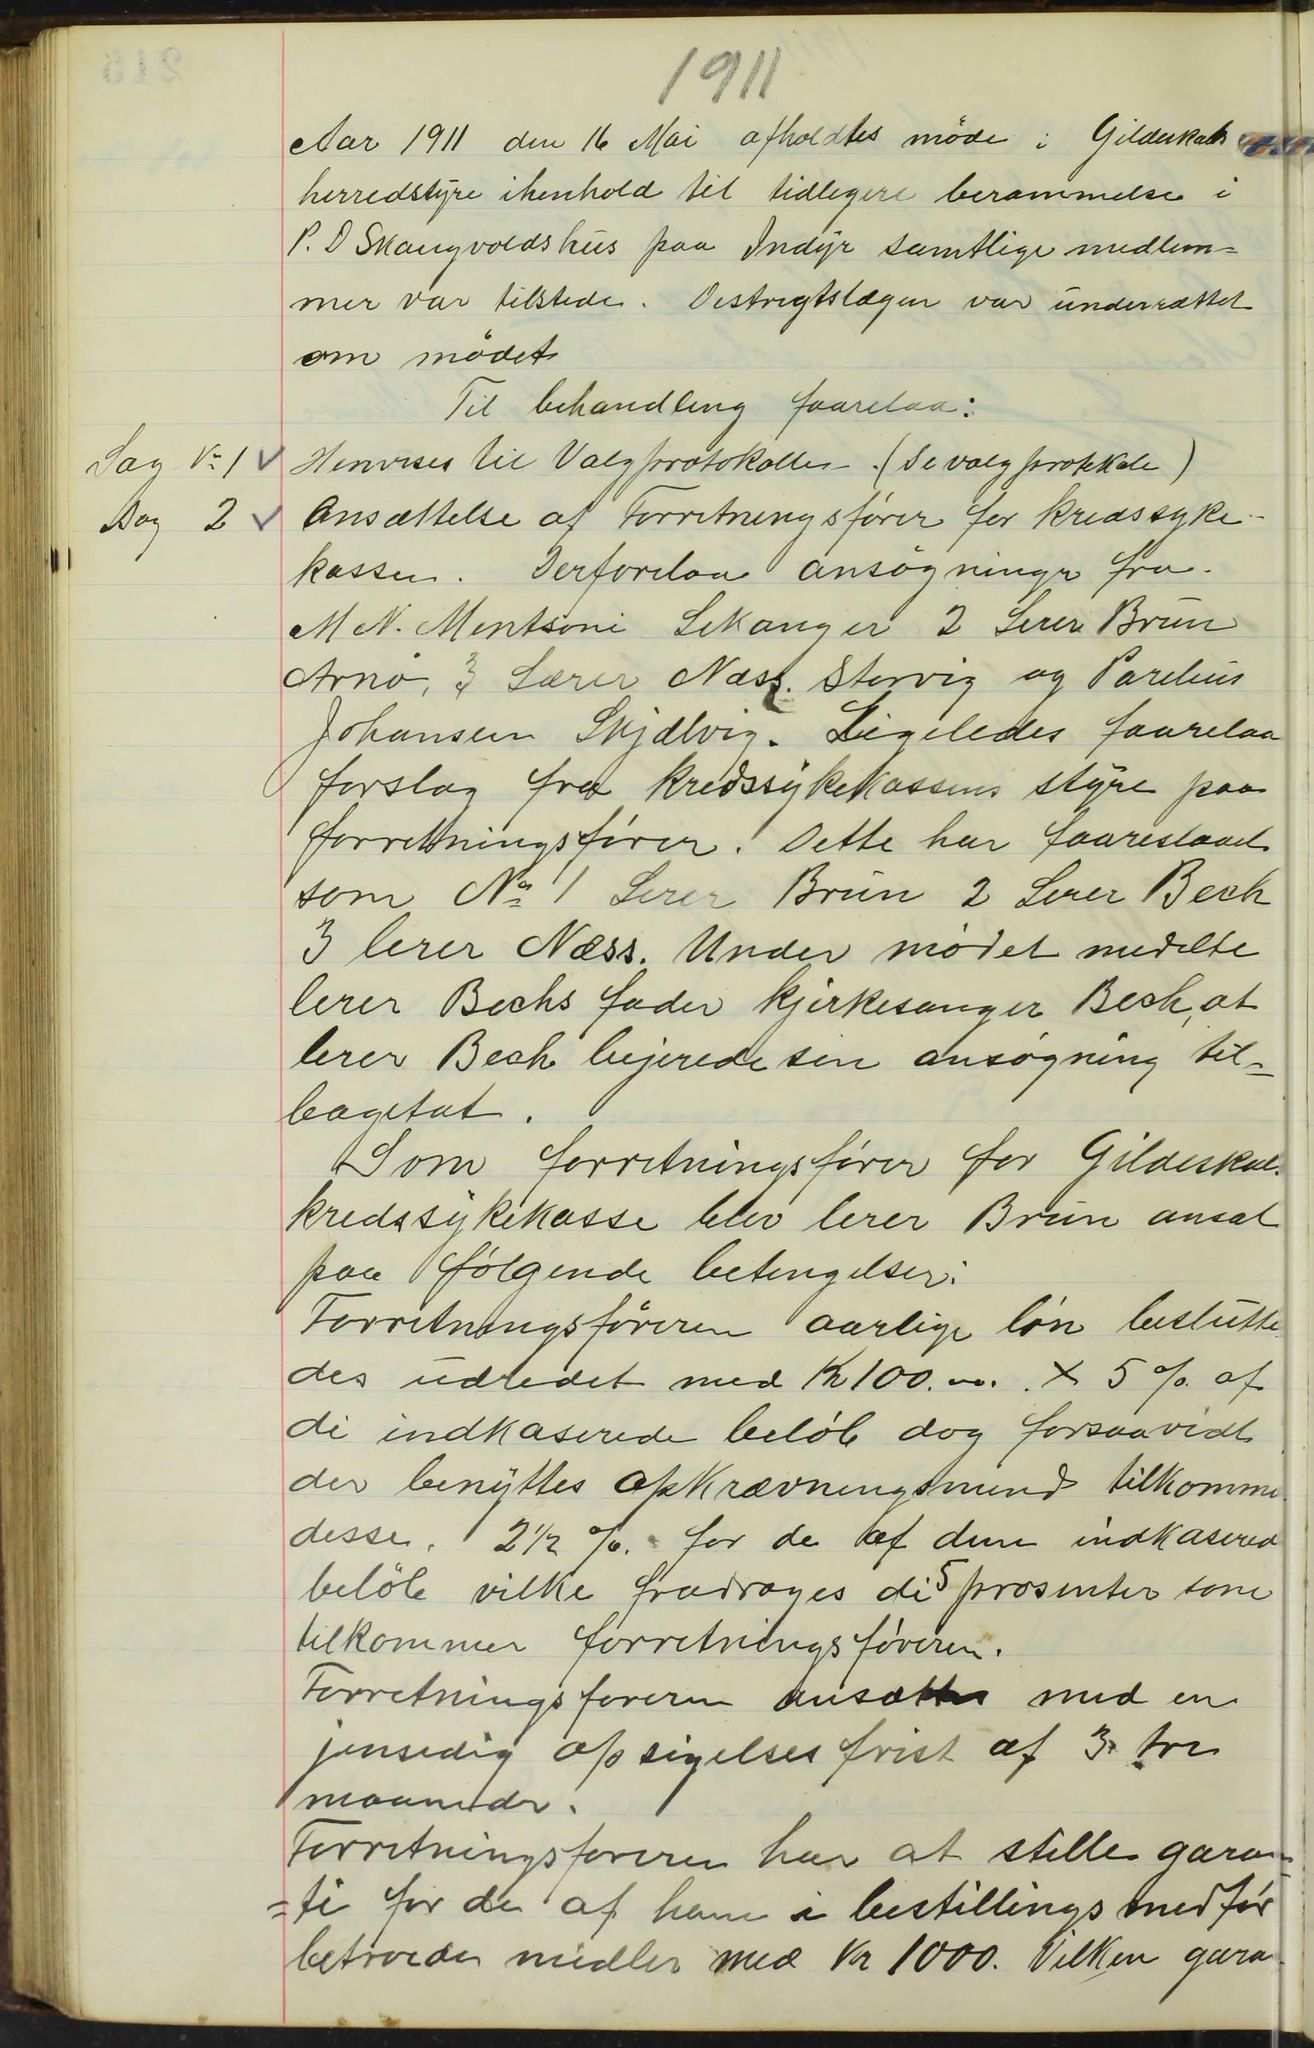 1911
Aar 1911 den 16 Mai afholdtes möde i Gildeskaals
herredstyre ihenhold til tidligere berammelse i
P. D Skaugvoldshus paa Indyr samtlige medlem=
mer var tilstede. Destrigtslægen var underrættet
om mödet
Til behandling faarelaa:
Sag № 1 Henvises til Valgprotokollen. (Se valgprotokole)
Sag 2 Ansættelse af Forretningsfører for kredssyke-
kassen. Derforelaa ansøgninger fra
M N. Mentsoni Sekanger 2 Lerer Brun
Arnø, 3 Lærer Næss. Storvig og Parelius
Johansen Skjælvig. Ligeledes faarelaa
forslag fra kredssykekassens styre paa
forretningsfører. Dette har faareslaaet
som № 1 Lerer Brun 2 Lerer Bech
3 lerer Næss. Under mødet medelte
lerer Bechs fader kjerkesanger Bech, at
lerer Bech bejerede sin ansøgning til=
bagetat.
Som forretningsfører for Gildeskaal
kredssykekasse blev lerer Brun ansat
paa følgende betengelser:
Forretningsføreren aarlige løn beslutte
des udredet med Kr 100.00. + 5 % af
di indkaserede beløb dog forsaavidt
der benyttes opkrævningsmend tilkomme
desse. 2½ %. for de af dem indkasered
beløb vilke fradrages di 5 prosenter som
tilkommer forretningsføreren.
Forretningsføreren ansættes med en
jensedig opsigelses frist af 3 tre
maaneder.
Forretningsføreren har at stille garan=
=ti for de af ham i bestillings medfør
betroede midler med Kr 1000. Vilken gara